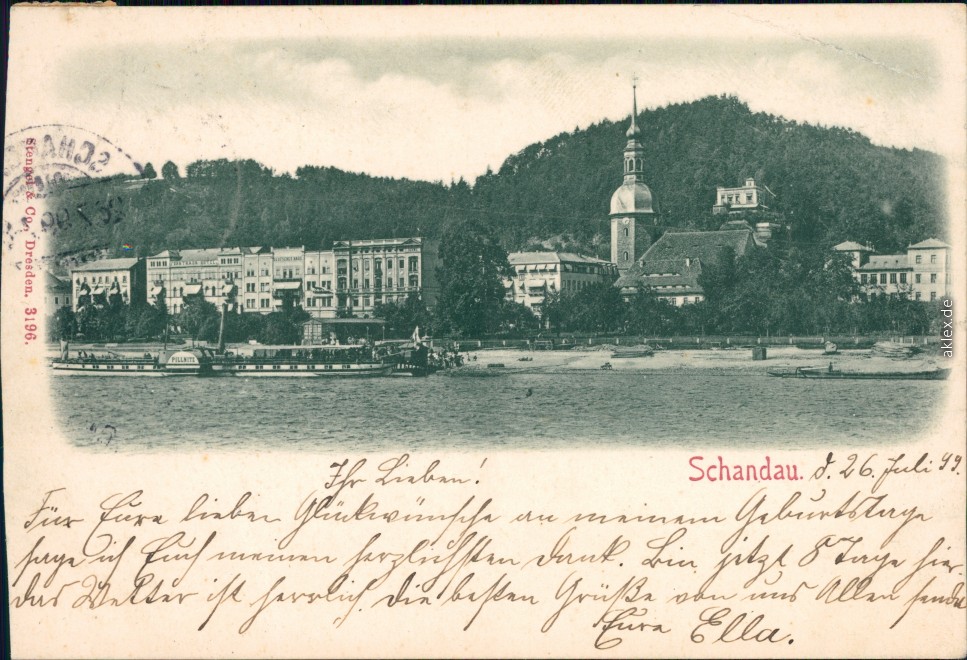 SCHANDAU
Stengel & Co., Dresden. 3196.
PILLNITZ
aklex.de
Ihr Lieben!
Schandau. d. 26. Juli 99.
Für Eure lieben Glückwünsche an meinem Geburtstage
sage ich Euch meinen herzlichsten Dank. Bin jetzt 8 Tage hier,
das Wetter ist herrlich. Die besten Grüße von uns Allen sendet
Eure Ella.